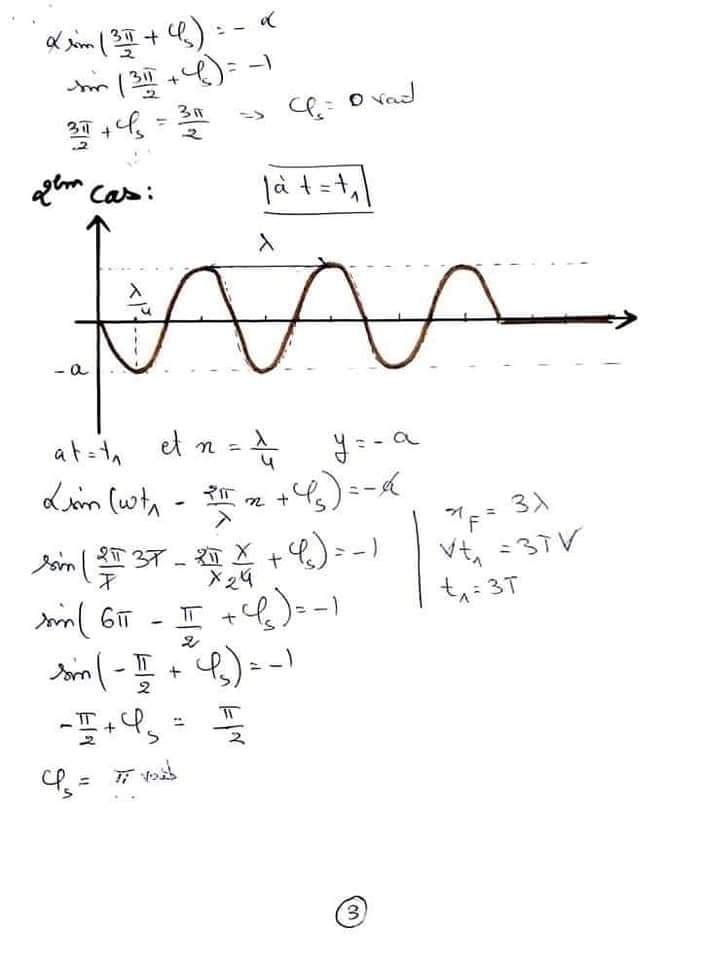 α sin(3π/2 + φs) = -α
sin(3π/2 + φs) = -1
3π/2 + φs = 3π/2 => φs = 0 rad
2èm Cas: |à t=t₁|
λ
λ/4
-a
at=t₁ et x = λ/4 y = -a
α sin(ωt₁ - 2π/λ x + φs) = -α
sin(2π/T 3T - 2π/λ λ/24 + φs) = -1
sin(6π - π/2 + φs) = -1
sin(-π/2 + φs) = -1
-π/2 + φs = π/2
φs = π rad
xF = 3λ
Vt₁ = 3TV
t₁ = 3T
3